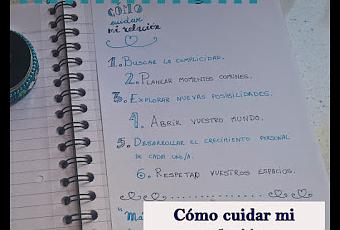 CÓMO
cuidar
mi relación
1. BUSCAR LA COMPLICIDAD.
2. PLANEAR MOMENTOS COMUNES.
3. EXPLORAR NUEVAS POSIBILIDADES.
4. ABRIR VUESTRO MUNDO.
5. DESARROLLAR EL CRECIMIENTO PERSONAL
DE CADA UNO/A.
6. RESPETAD VUESTROS ESPACIOS.
Cómo cuidar mi